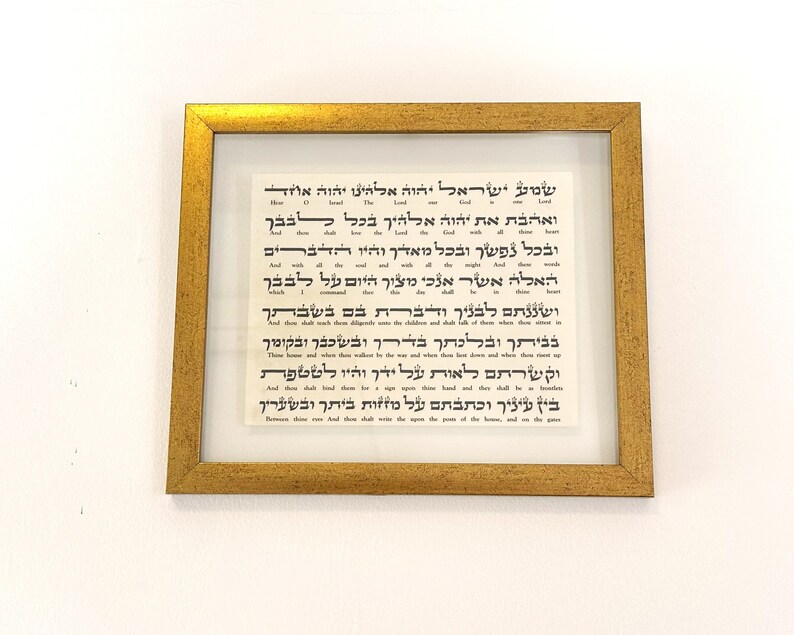 שמע ישראל יהוה אלהינו יהוה אחד
Hear O Israel The Lord our God is one Lord
ואהבת את יהוה אלהיך בכל לבבך
And thou shalt love the Lord thy God with all thine heart
ובכל נפשך ובכל מאדך והיו הדברים
And with all thy soul and with all thy might And these words
האלה אשר אנכי מצוך היום על לבבך
which I command thee this day shall be in thine heart
ושננתם לבניך ודברת בם בשבתך
And thou shalt teach them diligently unto thy children and shalt talk of them when thou sittest in
בביתך ובלכתך בדרך ובשכבך ובקומך
Thine house and when thou walkest by the way and when thou liest down and when thou risest up
וקשרתם לאות על ידך והיו לטטפת
And thou shalt bind them for a sign upon thine hand and they shall be as frontlets
בין עיניך וכתבתם על מזזות ביתך ובשעריך
Between thine eyes And thou shalt write the upon the posts of thy house, and on thy gates